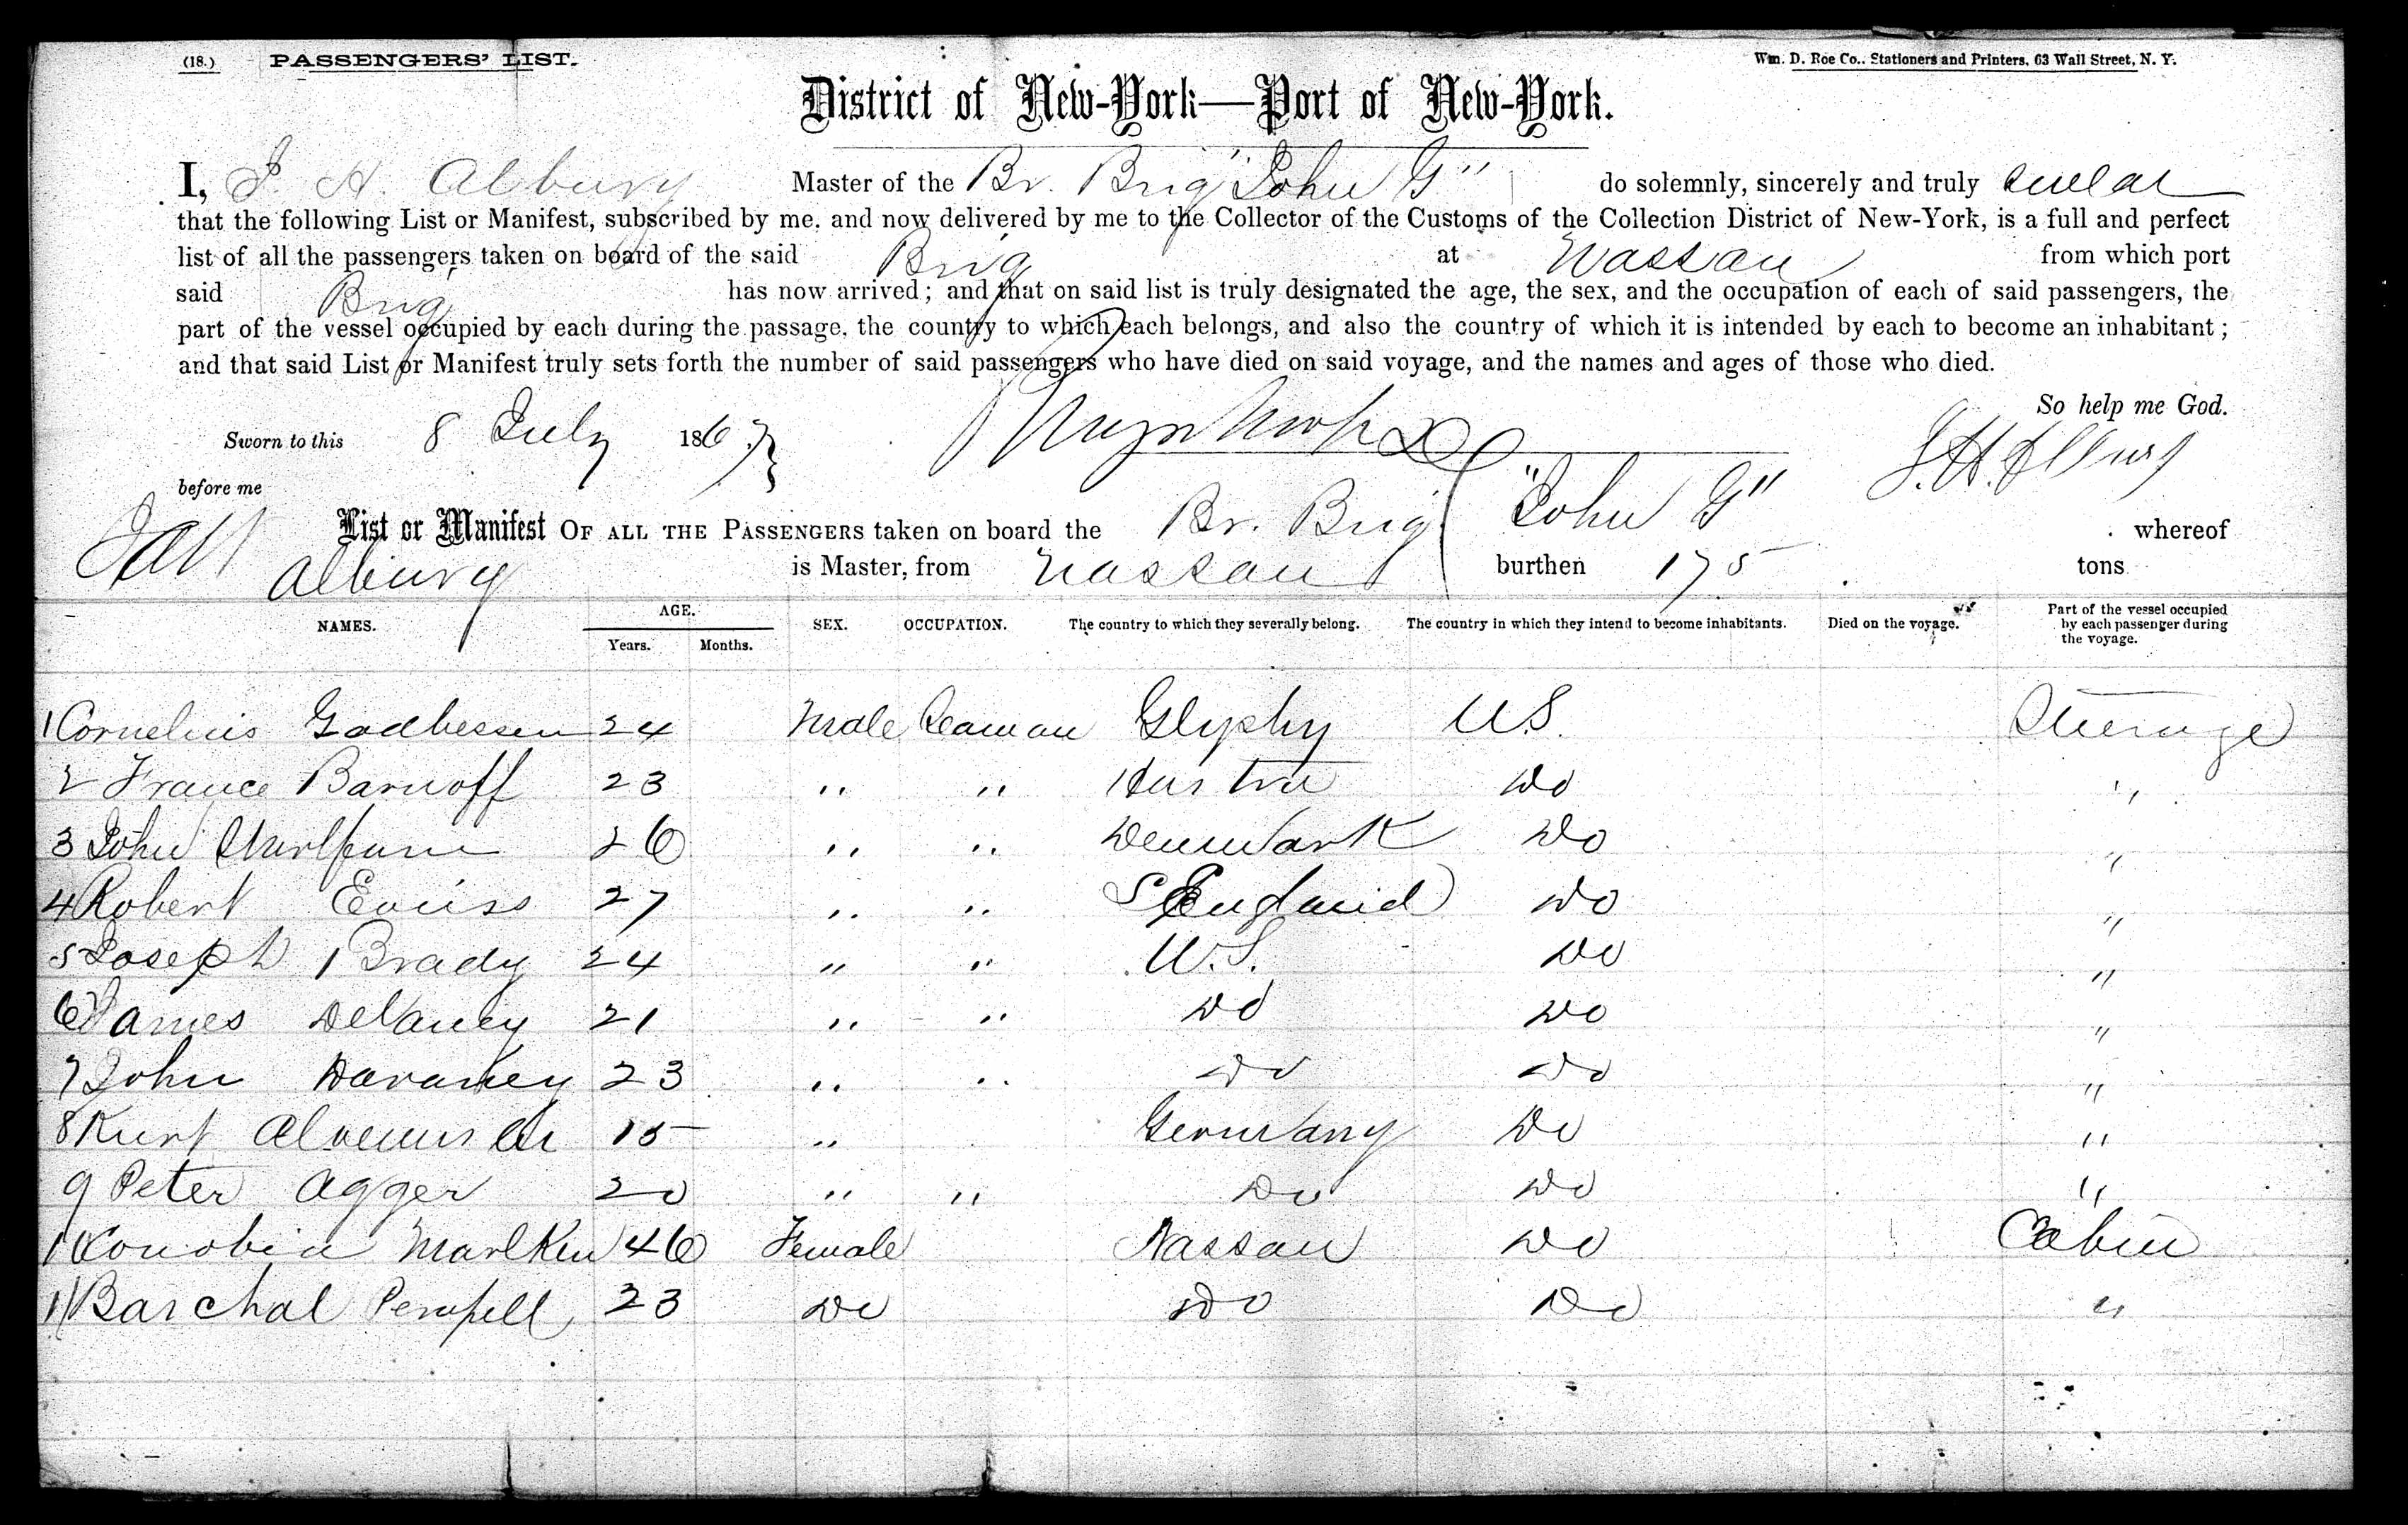 (18.) PASSENGERS' LIST. Wm. D. Roe Co., Stationers and Printers, 63 Wall Street, N. Y.
District of New-York—Port of New-York.
I, J. H. Albury Master of the Br. Brig "John G" do solemnly, sincerely and truly swear
that the following List or Manifest, subscribed by me, and now delivered by me to the Collector of the Customs of the Collection District of New-York, is a full and perfect
list of all the passengers taken on board of the said Brig at Nassau from which port
said Brig has now arrived; and that on said list is truly designated the age, the sex, and the occupation of each of said passengers, the
part of the vessel occupied by each during the passage, the country to which each belongs, and also the country of which it is intended by each to become an inhabitant;
and that said List or Manifest truly sets forth the number of said passengers who have died on said voyage, and the names and ages of those who died.
So help me God.
Sworn to this 8 July 1867 J. H. Albury
before me
List or Manifest OF ALL THE PASSENGERS taken on board the Br. Brig "John G" whereof
Albury is Master, from Nassau burthen 175 tons
NAMES. AGE. Years. Months. SEX. OCCUPATION. The country to which they severally belong. The country in which they intend to become inhabitants. Died on the voyage. Part of the vessel occupied by each passenger during the voyage.
1 Cornelius 24 Male Seaman U.S. Steerage
2 France Barnoff 23 " " Do "
3 John 26 " " Denmark Do "
4 Robert 27 " " England Do "
5 Joseph Brady 24 " " U.S. Do "
6 James Delaney 21 " " Do Do "
7 John 23 " " Do Do "
8 Kurt 15 " Germany Do "
9 Peter Agger 20 " " Do Do "
46 Female Nassau Do Cabin
11 Barchal 23 Do Do Do "